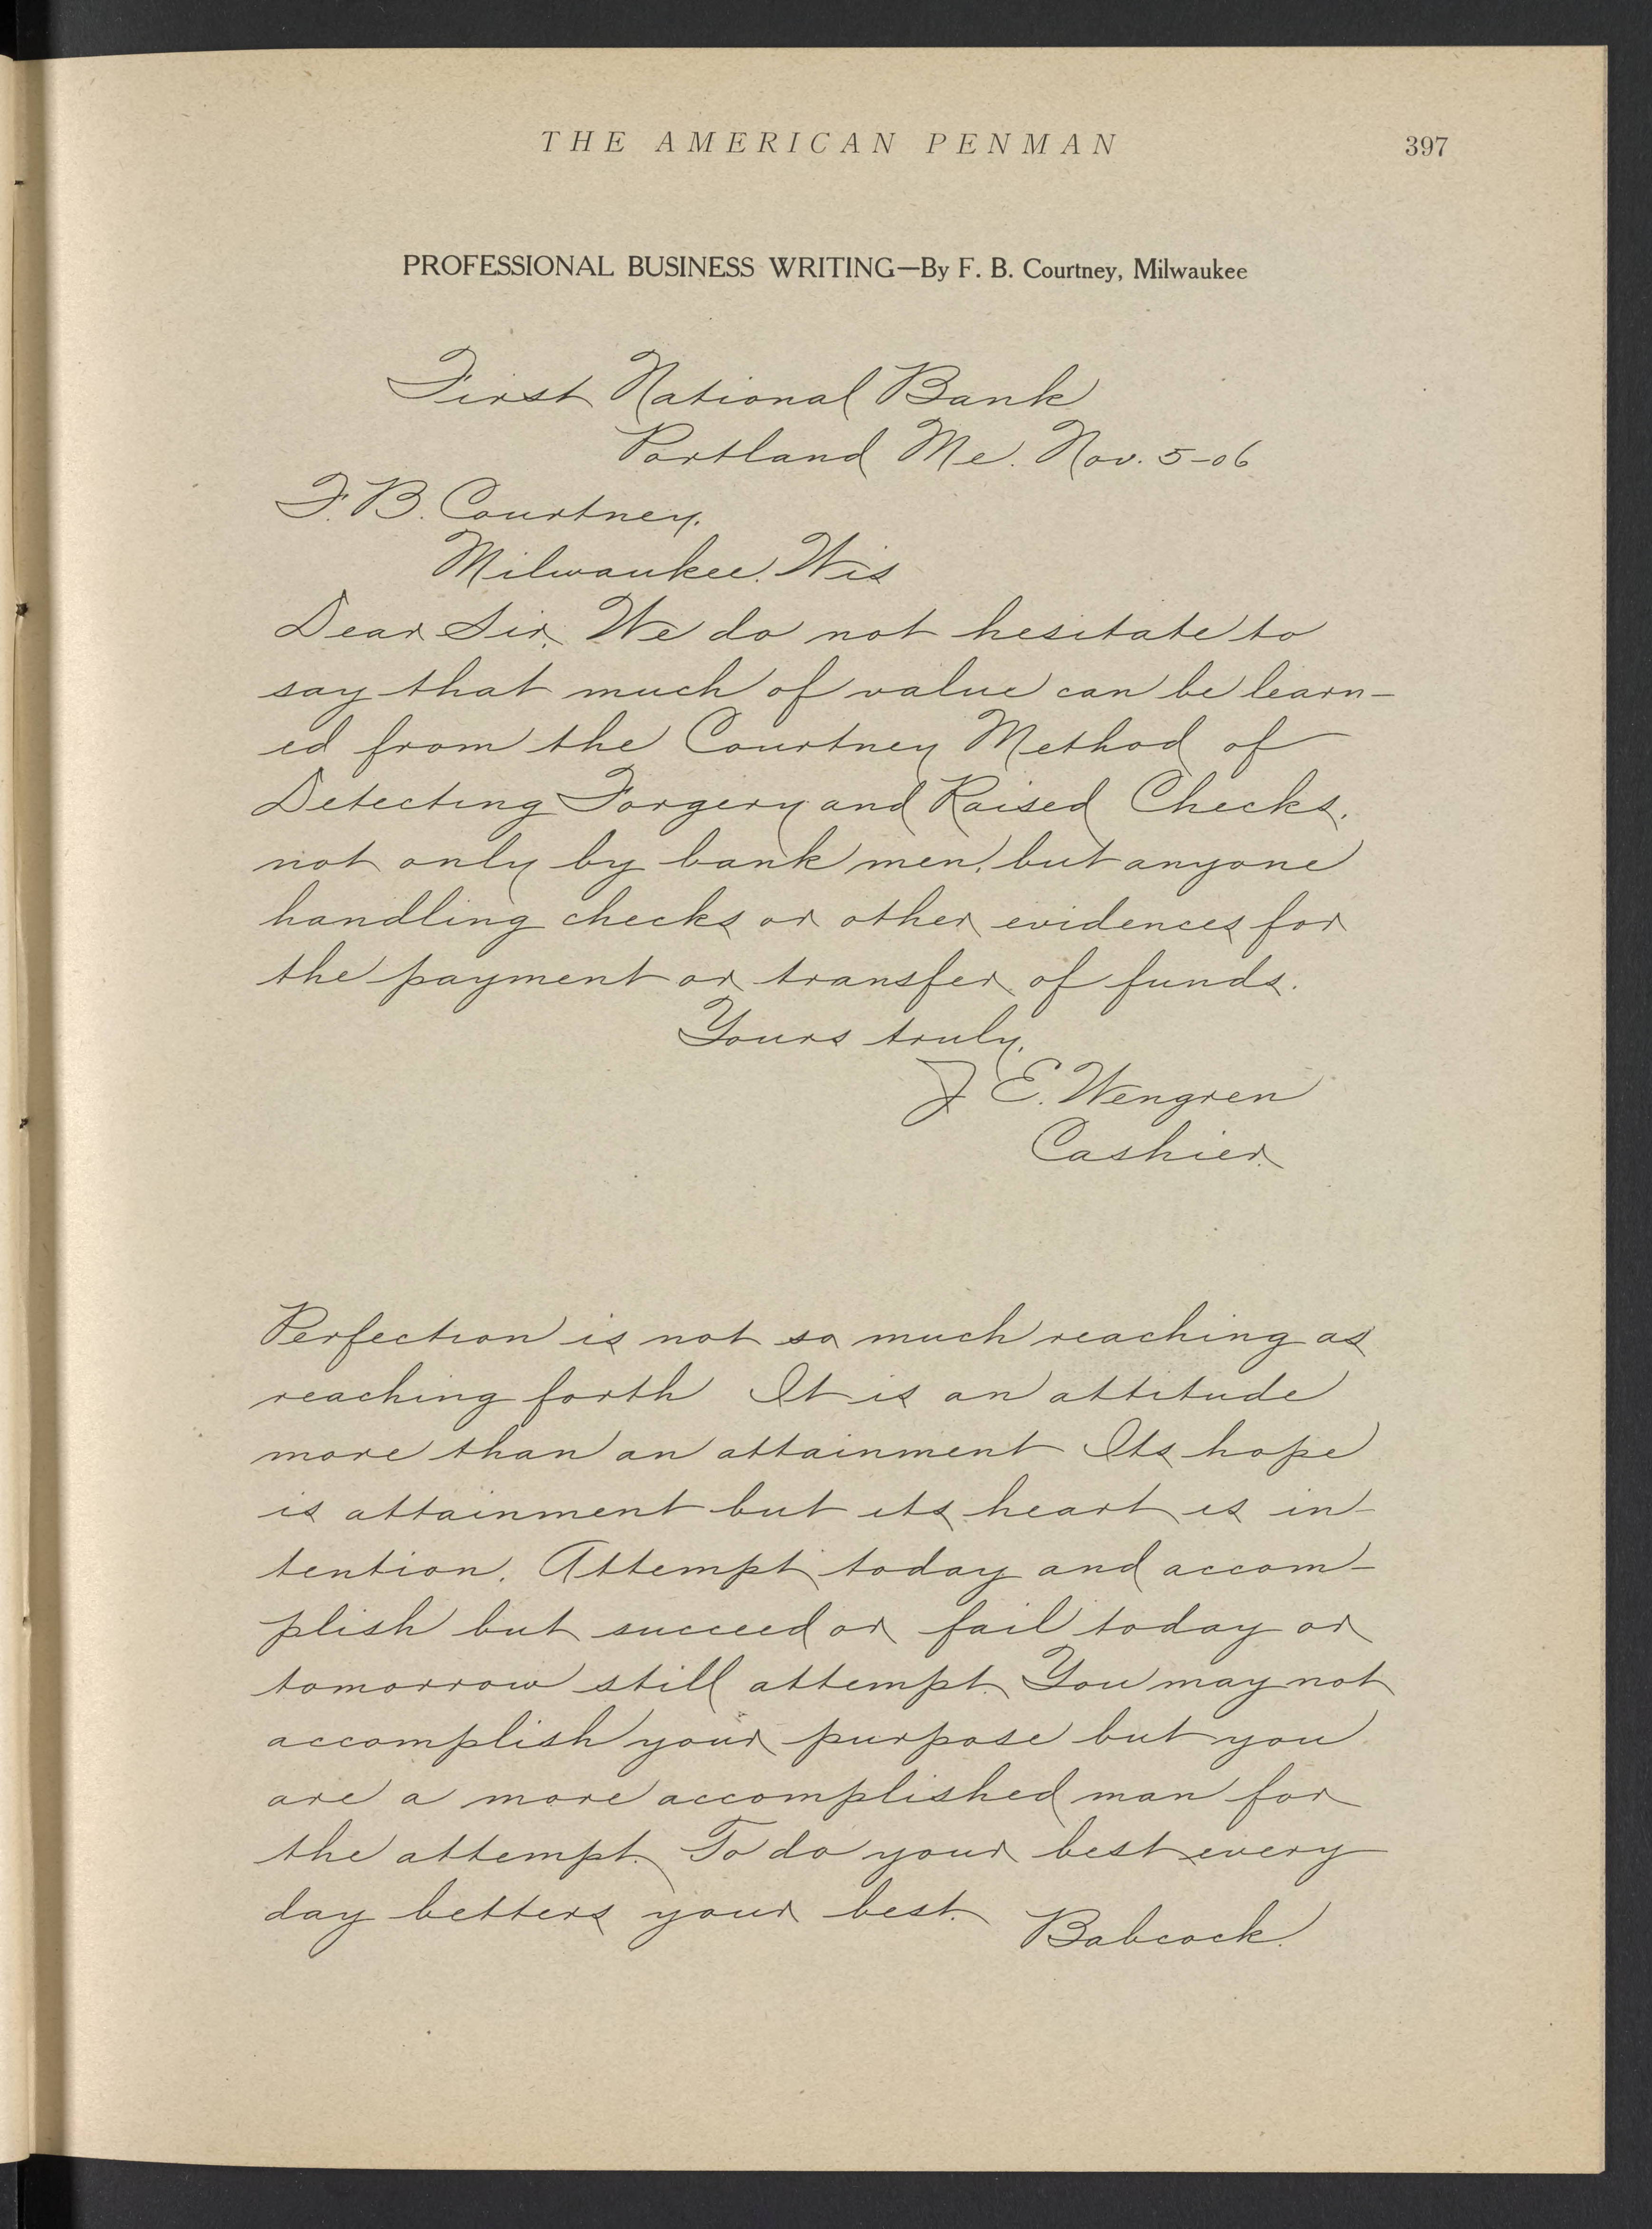 THE AMERICAN PENMAN 397
PROFESSIONAL BUSINESS WRITING—By F. B. Courtney, Milwaukee
First National Bank
Portland Me. Nov. 5-06
F. B. Courtney,
Milwaukee. Wis
Dear Sir, We do not hesitate to
say that much of value can be learn-
ed from the Courtney Method of
Detecting Forgery and Raised Checks,
not only by bank men, but anyone
handling checks or other evidences for
the payment or transfer of funds.
Yours truly,
J E. Wengren
Cashier.
Perfection is not so much reaching as
reaching forth It is an attitude
more than an attainment Its hope
is attainment but its heart is in-
tention. Attempt today and accom-
plish but succeed or fail today or
tomorrow still attempt. You may not
accomplish your purpose but you
are a more accomplished man for
the attempt. To do your best every
day betters your best. Babcock.